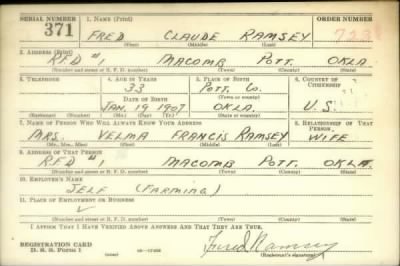 SERIAL NUMBER 1. NAME (Print) ORDER NUMBER
371 FRED CLAUDE RAMSEY
(First) (Middle) (Last)
2. ADDRESS (Print)
RFD #1 MACOMB POTT. OKLA.
(Number and street or R. F. D. number) (Town) (County) (State)
3. TELEPHONE 4. AGE IN YEARS 5. PLACE OF BIRTH 6. COUNTRY OF CITIZENSHIP
33 POTT. CO.
DATE OF BIRTH (Town or county)
JAN. 19 1907 OKLA. U.S.
(Exchange) (Number) (Mo.) (Day) (Yr.) (State or country)
7. NAME OF PERSON WHO WILL ALWAYS KNOW YOUR ADDRESS 8. RELATIONSHIP OF THAT PERSON
MRS. VELMA FRANCIS RAMSEY WIFE
(Mr., Mrs., Miss) (First) (Middle) (Last)
9. ADDRESS OF THAT PERSON
RFD #1 MACOMB POTT. OKLA.
(Number and street or R. F. D. number) (Town) (County) (State)
10. EMPLOYER'S NAME
SELF (FARMING)
11. PLACE OF EMPLOYMENT OR BUSINESS
(Number and street or R. F. D. number) (Town) (County) (State)
I AFFIRM THAT I HAVE VERIFIED ABOVE ANSWERS AND THAT THEY ARE TRUE.
REGISTRATION CARD
D. S. S. Form 1 Fred Ramsey
(Registrant's signature)